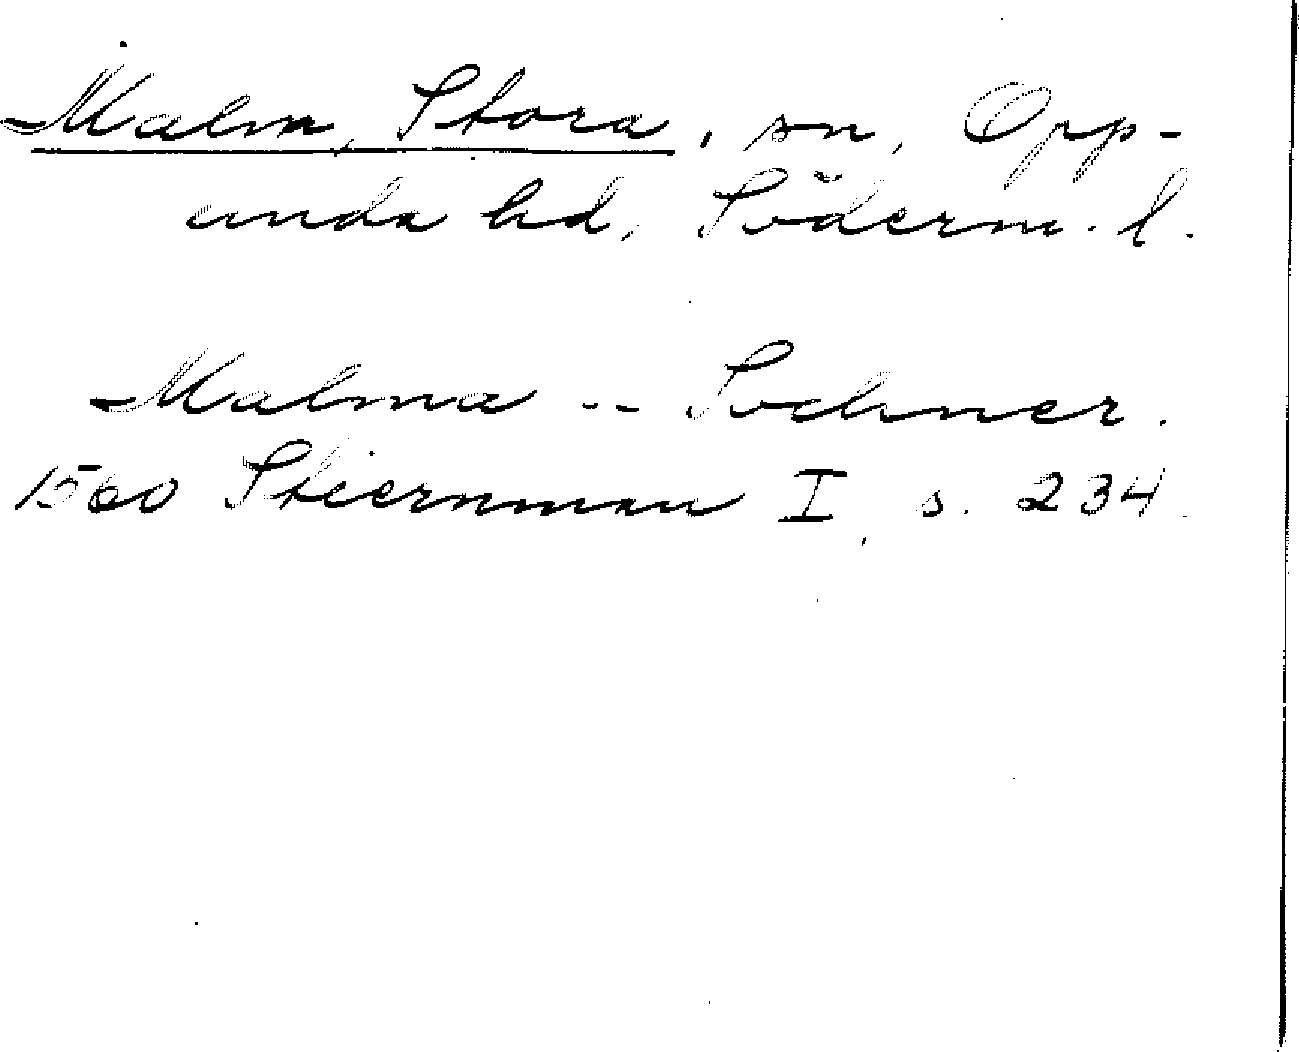 Malm, Stora, sn, Opp-
unda hd, Söderm. l.
Malma -- Sochner.
1560 Stiernman I, s. 234.